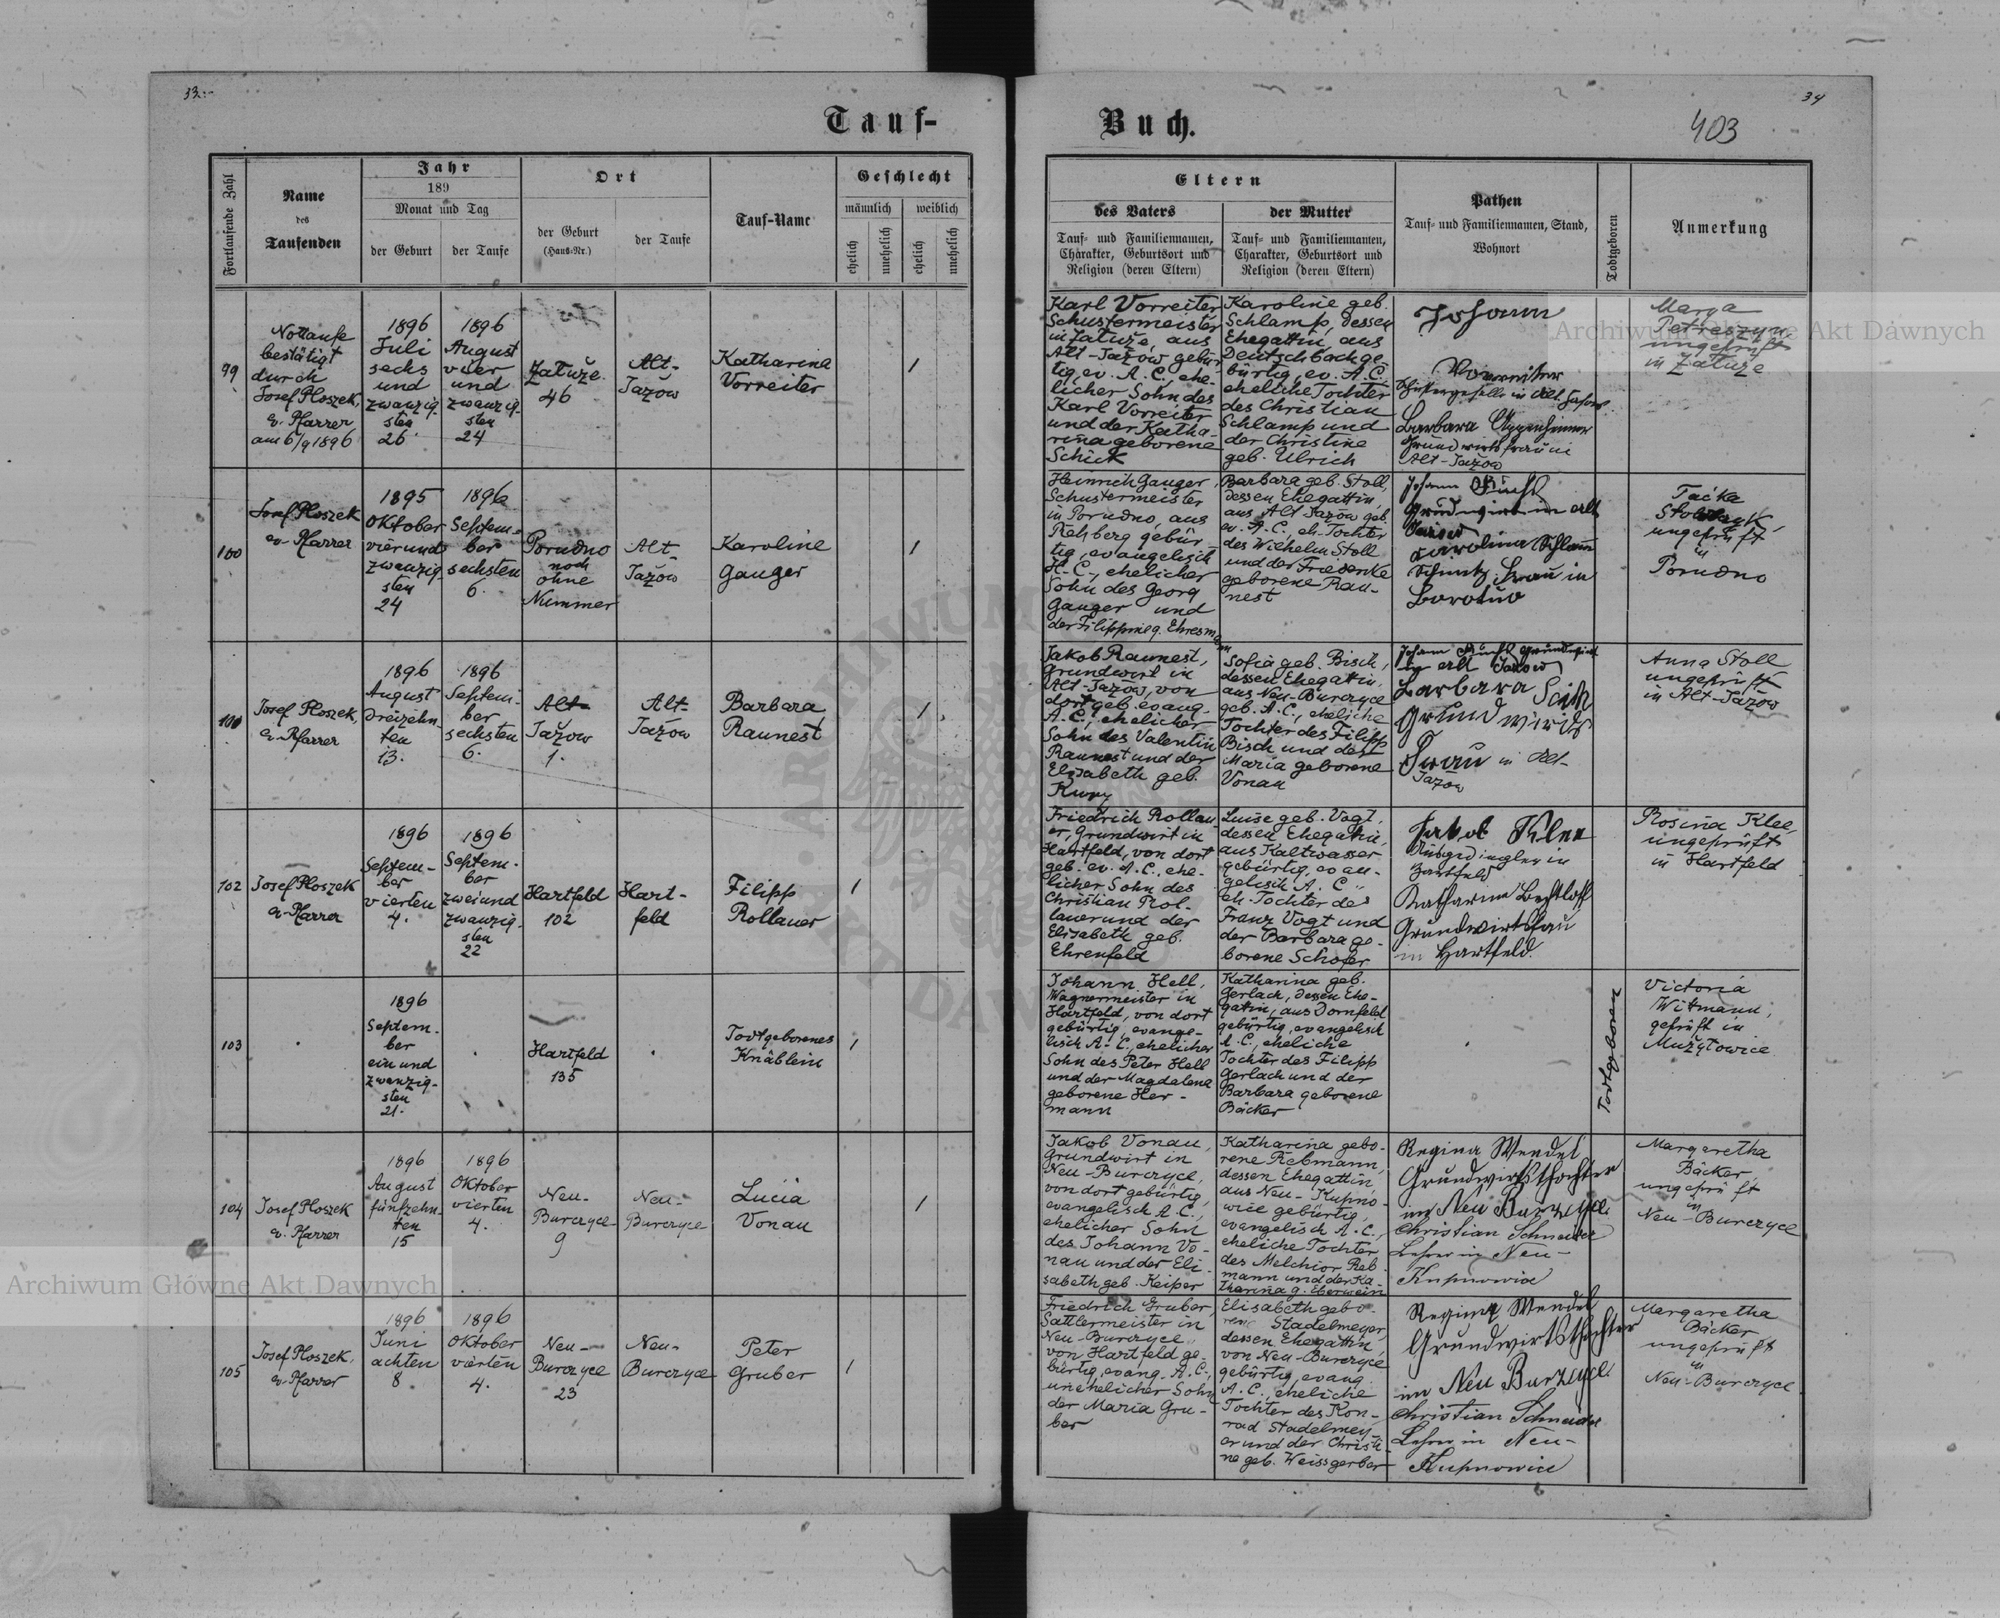 33.
34
Tauf-
Buch.
403
Fortlaufende Zahl
Name
des
Taufenden
Jahr
189
Monat und Tag
der Geburt
der Taufe
Ort
der Geburt
(Haus-Nr.)
der Taufe
Tauf-Name
Geschlecht
männlich
weiblich
ehelich
unehelich
ehelich
unehelich
Eltern
des Vaters
Tauf- und Familiennamen,
Charakter, Geburtsort und
Religion (deren Eltern)
der Mutter
Tauf- und Familiennamen,
Charakter, Geburtsort und
Religion (deren Eltern)
Pathen
Tauf- und Familiennamen, Stand,
Wohnort
Todtgeboren
Anmerkung
99
Nottaufe
bestätigt
durch
Josef Ploszek,
ev. Pfarrer
am 6/9 1896
1896
Juli
sechs
und
zwanzig-
sten
26
1896
August
vier
und
zwanzig-
sten
24
Zaturze
46
Alt-
Jažow
Katharina
Vorreiter
1
Karl Vorreiter
Schustermeister
in Zaturze, aus
Alt-Jažow gebür-
tig, ev. A. C., ehe-
licher Sohn des
Karl Vorreiter
und der Katha-
rina geborene
Schick
Karoline geb.
Schlamp, dessen
Ehegattin, aus
Deutschbach ge-
bürtig, ev. A. C.,
eheliche Tochter
des Christian
Schlamp und
der Christine
geb. Ulrich
Johann
Vorreiter
in Alt Jažow
Barbara Oppenheimer
Grundwirtsfrau in
Alt-Jažow
Marya
ungeprüft
in Zaturze
100
Josef Ploszek
ev. Pfarrer
1895
Oktober
vierund
zwanzig-
sten
24
1896
Septem-
ber
sechsten
6.
Porudno
noch
ohne
Nummer
Alt-
Jažow
Karoline
Gauger
1
Heinrich Gauger,
Schustermeister
in Porudno, aus
Rehberg gebür-
tig, evangelisch
H. C., ehelicher
Sohn des Georg
Gauger und
der Filippine g. Ehresmann
Barbara geb. Stoll,
dessen Ehegattin,
aus Alt Jažow geb.
ev. A. C., eh. Tochter
des Wilhelm Stoll
und der Friederike
geborene Rau-
nest
Johann
Grundwirt in Alt
Jažow
Karolina Schlamm
Schmitz Frau in
Tacka
ungeprüft
in
Porudno
101
Josef Ploszek,
ev. Pfarrer
1896
August
dreizehn-
ten
13.
1896
Septem-
ber
sechsten
6.
Alt-
Jažow
1.
Alt-
Jažow
Barbara
Raunest
1
Jakob Raunest,
Grundwirt in
Alt-Jažow, von
dort geb. evang.
A. C., ehelicher
Sohn des Valentin
Raunest und der
Elisabeth geb.
Kury
Sofia geb. Bisch,
dessen Ehegattin,
aus Neu-Burczyce
geb. A. C., eheliche
Tochter des Filipp
Bisch und des
Maria geborene
Vonau
Johann
in Alt Jazow
Barbara
Grundwirts
Frau in Alt-
Jažow
Anna Stoll
ungeprüft
in Alt-Jažow
102
Josef Ploszek
ev. Pfarrer
1896
Septem-
ber
vierten
4.
1896
Septem-
ber
zweiund
zwanzig-
sten
22
Hartfeld
102
Hart-
feld
Filipp
Rollauer
1
Friedrich Rollau-
er, Grundwirt in
Hartfeld, von dort
geb. ev. A. C., ehe-
licher Sohn des
Christian Rol-
lauer und der
Elisabeth geb.
Ehrenfeld
Luise geb. Vogt,
dessen Ehegattin,
aus Kaltwasser
gebürtig, evan-
gelisch A. C.,
eh. Tochter des
Franz Vogt und
der Barbara ge-
borene Schofer
Jakob Klee
in
Hartfeld
Katharina Bechtloff
Grundwirtsfrau
in Hartfeld.
Rosina Klee,
ungeprüft
in Hartfeld
103
1896
Septem-
ber
ein und
zwanzig-
sten
21.
Hartfeld
135
Todtgeborenes
Knäblein
1
Johann Hell,
Wagnermeister in
Hartfeld, von dort
gebürtig, evange-
lisch A. C., ehelicher
Sohn des Peter Hell
und der Magdalena
geborene Her-
mann
Katharina geb.
Gerlach, dessen Ehe-
gattin, aus Dornfeld
gebürtig, evangelisch
A. C., eheliche
Tochter des Filipp
Gerlach und der
Barbara geborene
Bäcker
Todtgeboren
Victoria
Witmann,
geprüft in
Mužyłowice
104
Josef Ploszek
ev. Pfarrer
1896
August
fünfzehn-
ten
15
1896
Oktober
vierten
4.
Neu-
Burczyce
9
Neu-
Burczyce
Lucia
Vonau
1
Jakob Vonau,
Grundwirt in
Neu-Burczyce,
von dort gebürtig,
evangelisch A. C.,
ehelicher Sohn
des Johann Vo-
nau und der Eli-
sabeth geb. Keiper
Katharina gebo-
rene Rebmann,
dessen Ehegattin
aus Neu-Kupno-
wice gebürtig,
evangelisch A. C.,
eheliche Tochter
des Melchior Reb-
mann und der Ka-
tharina g. Eberwein
Regina Wendel
Grundwirtsthochter
im Neu Burzyce
Christian Schneider
Lehrer in Neu-
Kupnowice
Margaretha
Bäcker,
ungeprüft
in
Neu-Burczyce
105
Josef Ploszek,
ev. Pfarrer
1896
Juni
achten
8
1896
Oktober
vierten
4.
Neu-
Burczyce
23
Neu-
Burczyce
Peter
Gruber
1
Friedrich Gruber,
Sattlermeister in
Neu-Burczyce,
von Hartfeld ge-
bürtig, evang. A. C.,
unehelicher Sohn
der Maria Gru-
ber
Elisabeth gebo-
rene Stadelmeyer,
dessen Ehegattin,
von Neu-Burczyce
gebürtig, evang.
A. C., eheliche
Tochter des Kon-
rad Stadelmey-
er und der Christi-
ne geb. Weissgerber
Regina Wendel
Grundwirtsthochter
im Neu Burzyce
Christian Schneider
Lehrer in Neu-
Kupnowice
Margaretha
Bäcker
ungeprüft
in
Neu-Burczyce
Archiwum Główne Akt Dawnych
Archiwum Główne Akt Dawnych